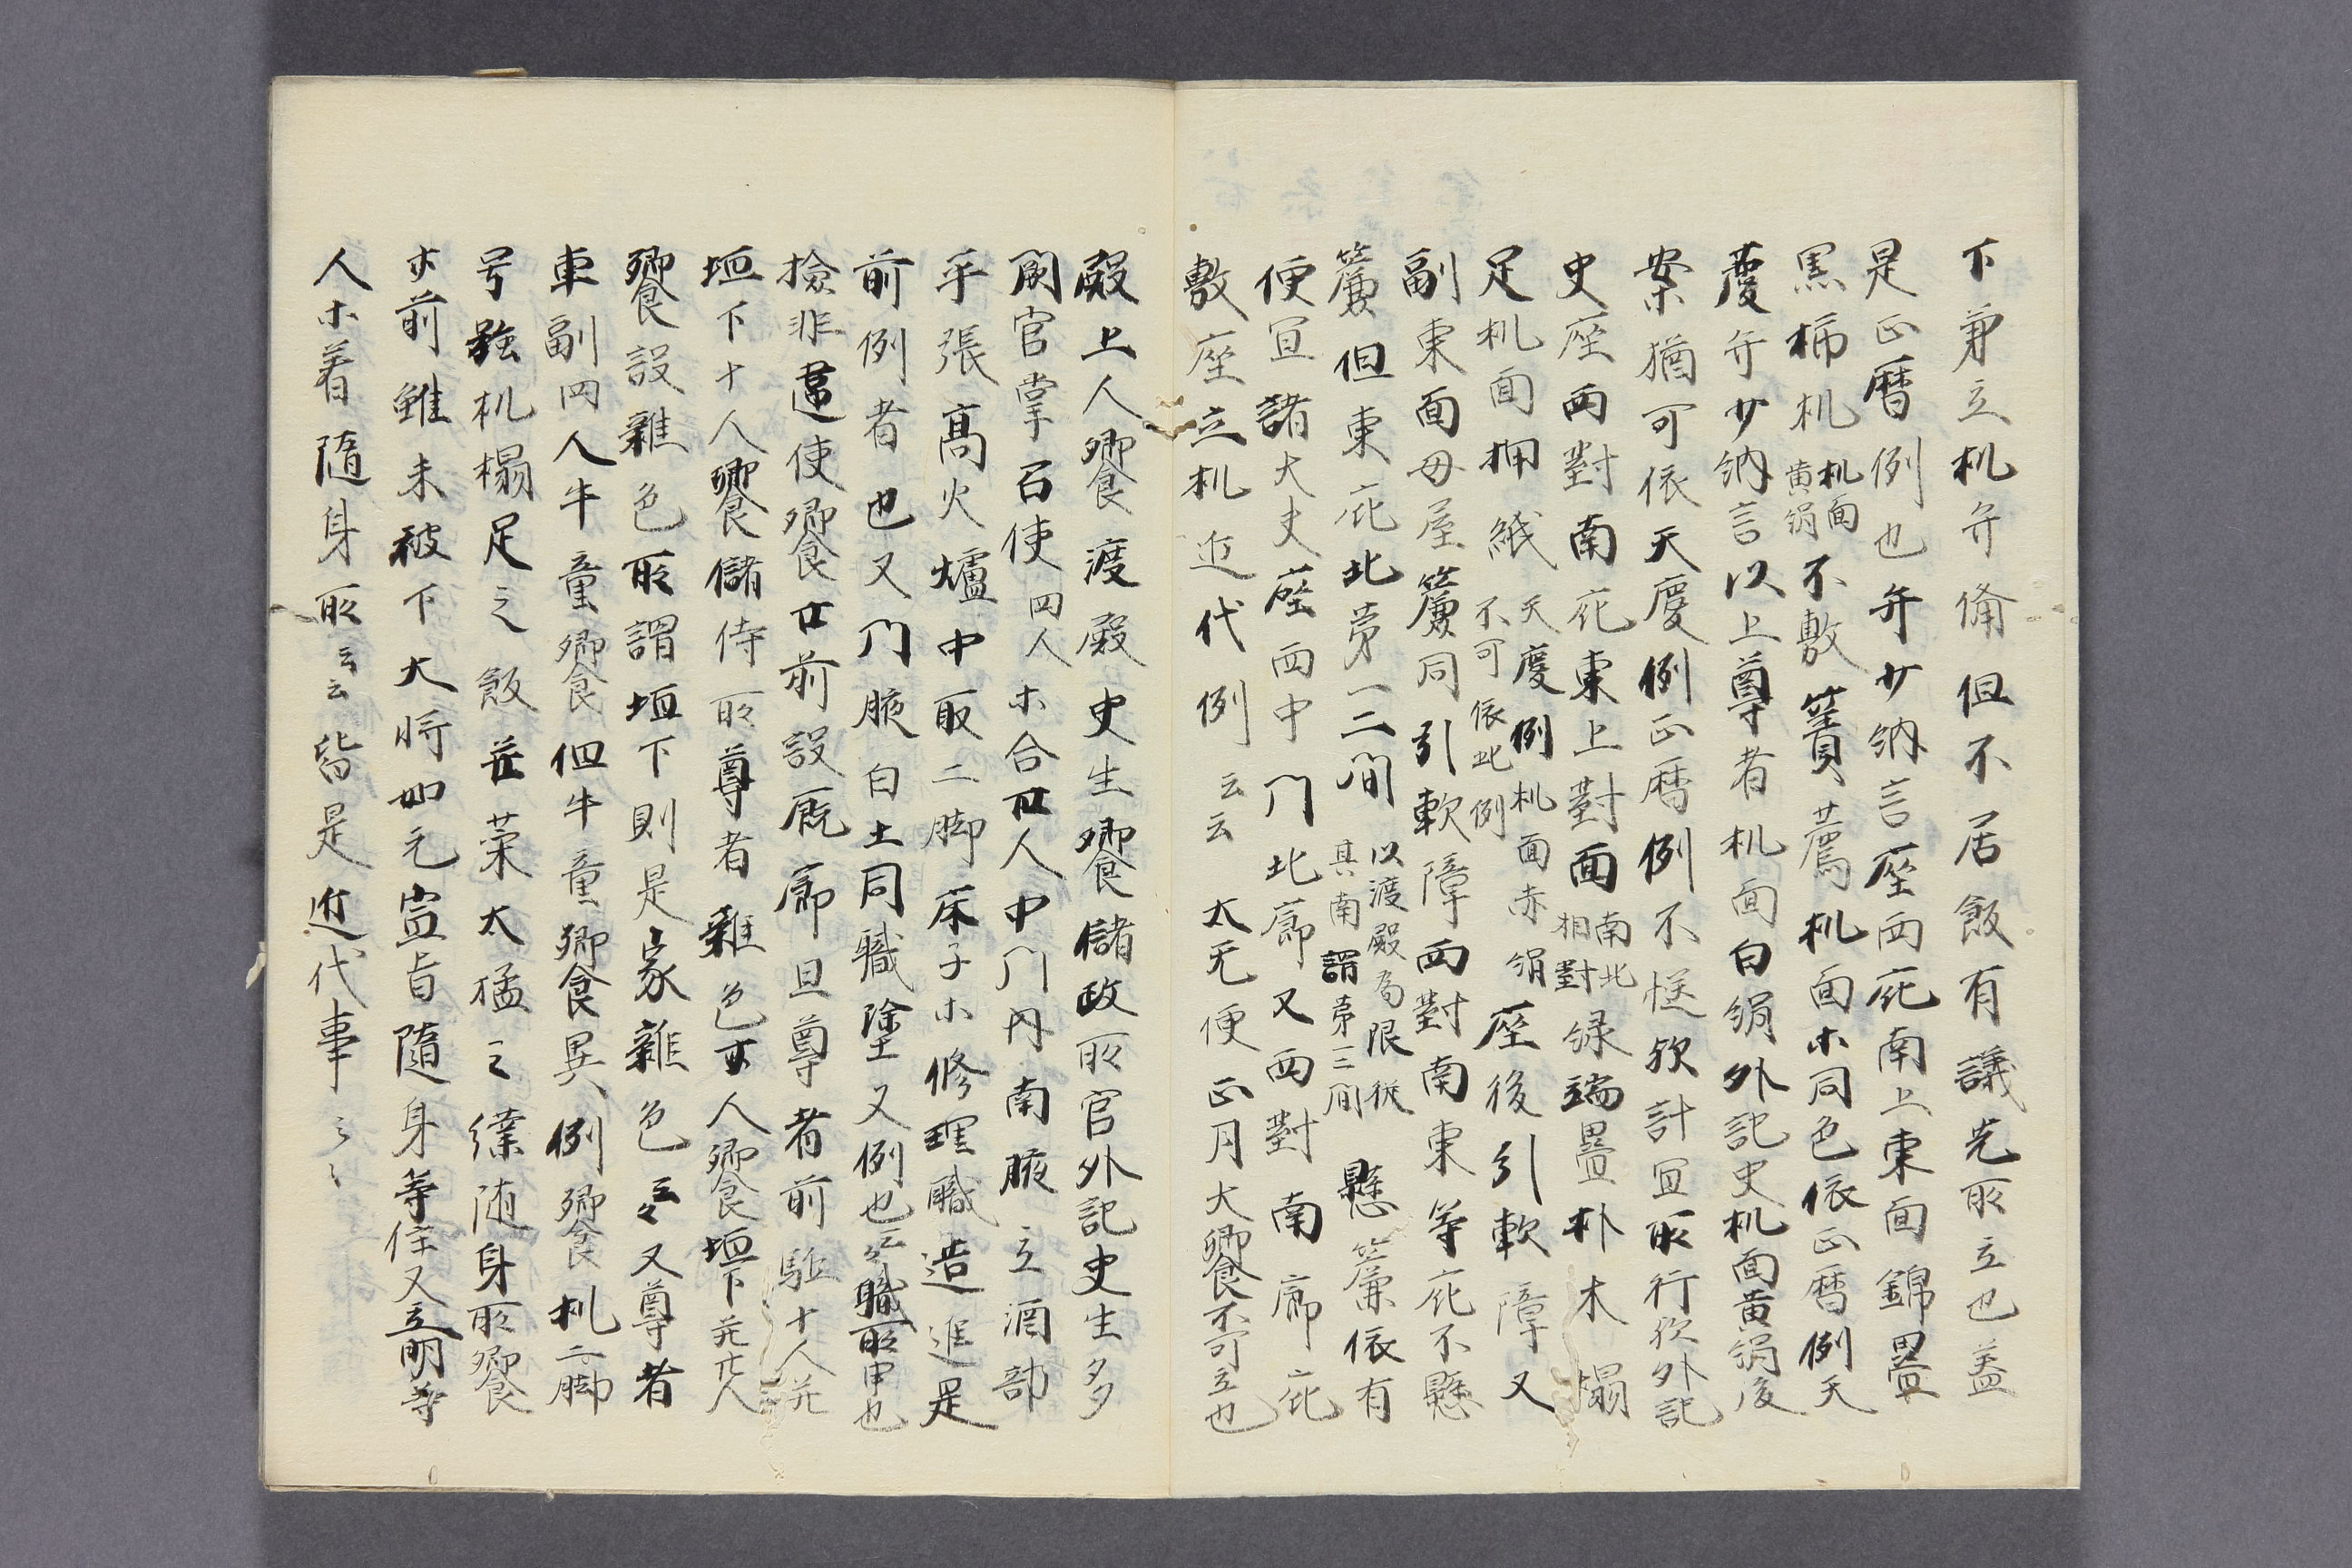 下第立机弁備但不居飯有議先所立也盖
是正暦例也弁少納言座西庇南上東面錦畳
黒柿机机面黄絹不敷簀薦机面ホ同色依正暦例天
慶弁少納言以上尊者机面白絹外記史机面黄絹後
案猶可依天慶例正暦例例不憶欤計冝所行欤外記
史座西對南庇東上對面南北相對緑端畳朴木榻
足机面押紙天慶例机面赤絹不可依此例座後引軟障又
副東面母屋簾同引軟障西對南東等庇不懸
簾但東庇北第一二間以渡殿為限従其南謂第三間懸簾依有
便冝諸大夫座西中門北廊又西對南廊庇
敷座立机近代例云云太无便正月大饗不可立也
殿上人饗渡殿史生饗儲政所官外記史生多
闕官掌召使四人ホ合卌人中門内南腋立酒部
平張髙火爐中取二脚床子ホ修理職造進是
前例者也又門腋白土同職塗又例也云々職所申也
撿非違使饗廿前設厩廊且尊者前駈十人元
垣下十人饗儲侍所尊者雜色卅人饗垣下元廿人
饗設雜色所謂垣下則是家雜色云々又尊者
車副四人牛童饗但牛童饗異例饗机二脚
号強机榻足之飯并菜太猛之継随身所饗
卅前雖未被下大将如元宣旨随身等候又立明等
人ホ着随身所云云皆是近代事々々